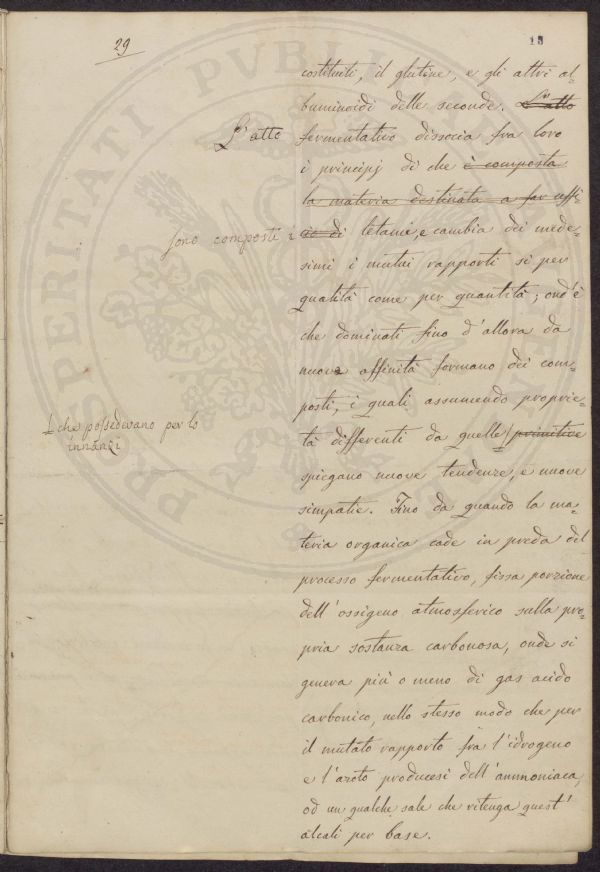 29
13
costituiti, il glutine, e gli altri al=
buminoidi delle seconde. L'atto
L'atto fermentativo dissocia fra loro
i principj di che è composta
la materia destinata a far uffi=
sono composti i cio di letami, e cambia dei mede=
simi i mutui rapporti sì per
qualità come per quantità; ond'è
che dominati fino d'allora da
nuova affinità formano dei com=
posti, i quali assumendo proprie=
tà differenti da quelle primitive
che possedevano per lo
innanzi
spiegano nuove tendenze, e nuove
simpatie. Fino da quando la ma=
teria organica cade in preda del
processo fermentativo, fissa porzione
dell'ossigeno atmosferico sulla pro=
pria sostanza carbonosa, onde si
genera più o meno di gas acido
carbonico, nello stesso modo che per
il mutato rapporto fra l'idrogeno
e l'azoto producesi dell'ammoniaca,
od un qualche sale che ritenga quest'
alcali per base.
PROSPERITATI PVBLICAE